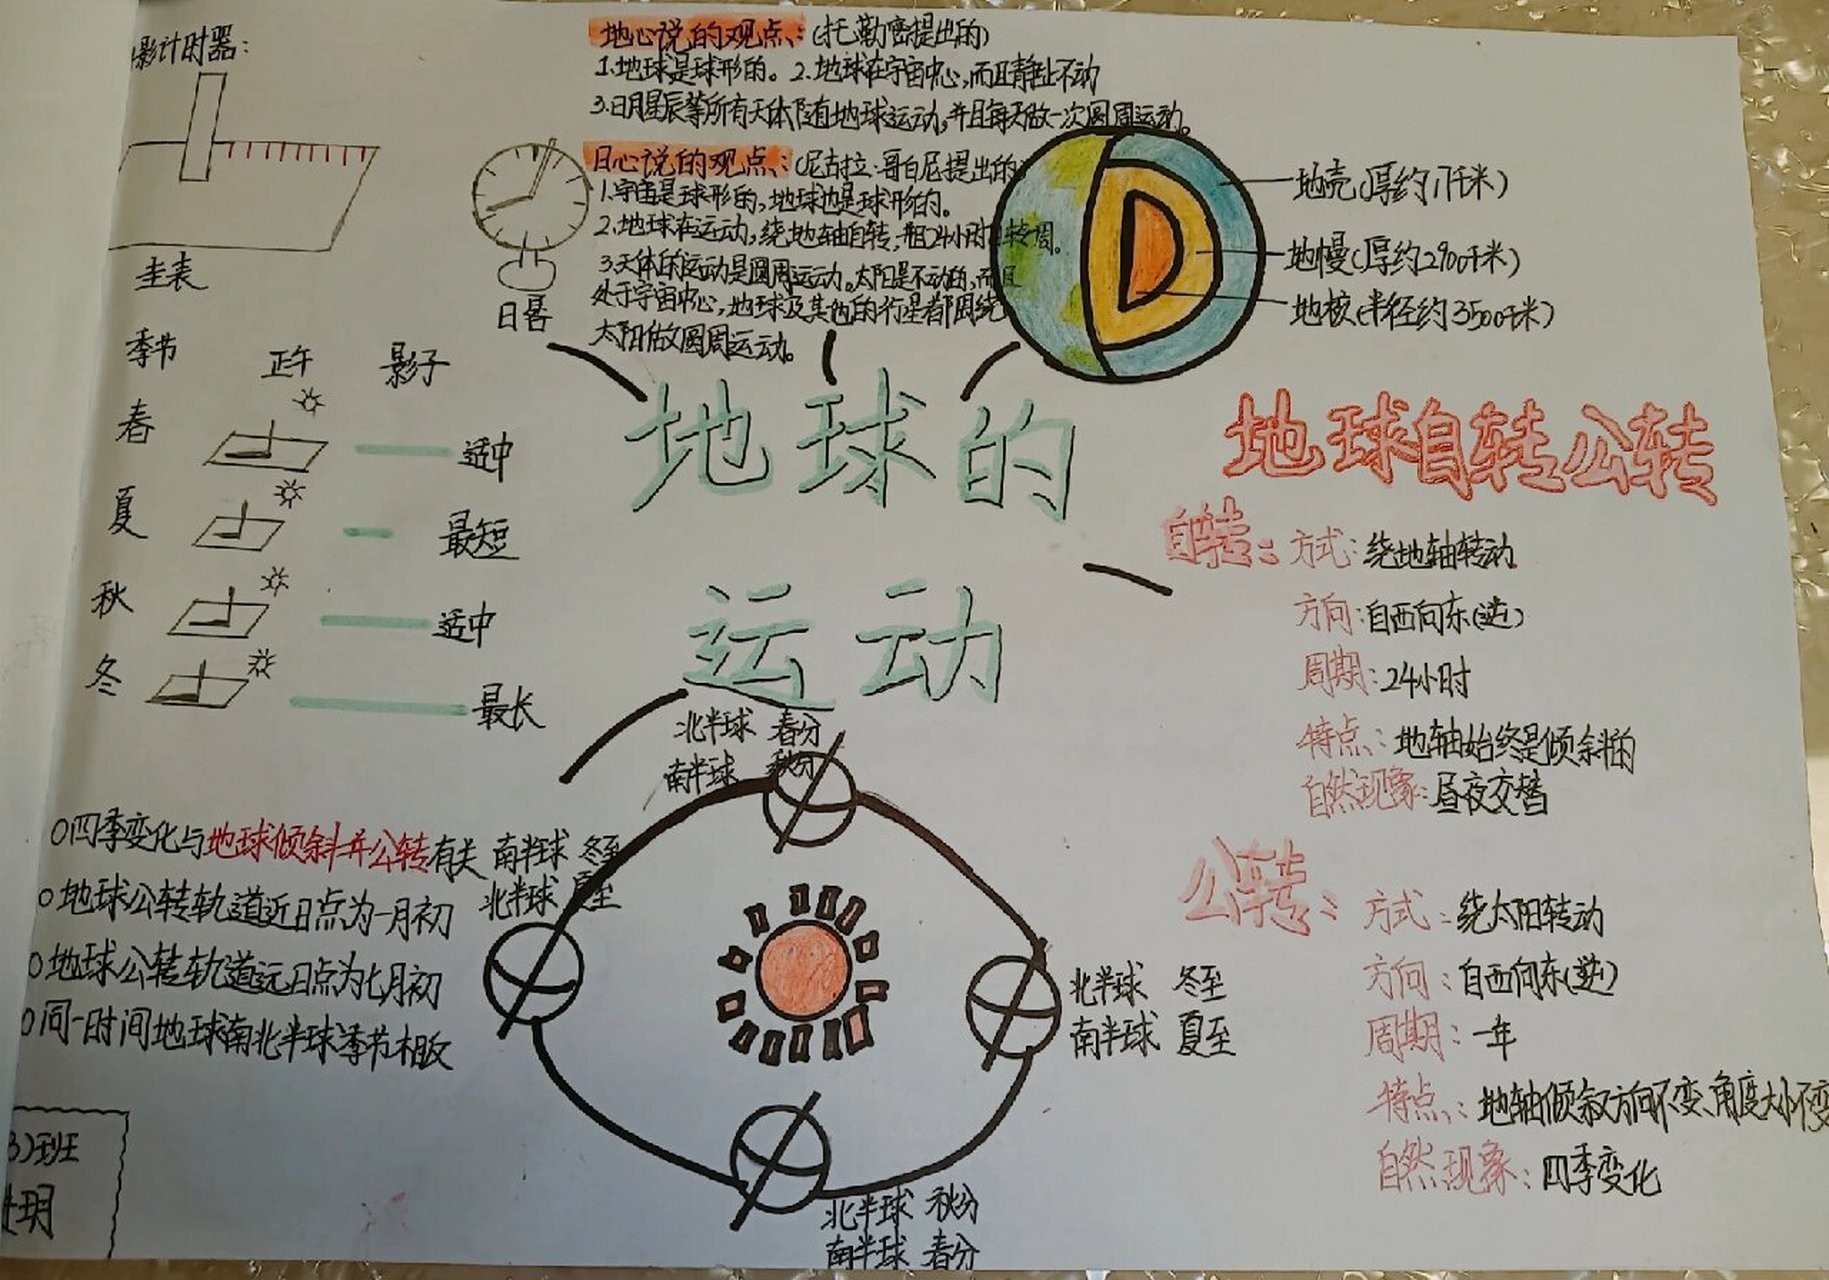 影计时器:
圭表
日晷
地心说的观点:(托勒密提出的)
1.地球是球形的。2.地球在宇宙中心,而且静止不动
3.日月星辰等所有天体随地球运动,并且每天做一次圆周运动。
日心说的观点:(尼古拉·哥白尼提出的)
1.宇宙是球形的,地球也是球形的。
2.地球在运动,绕地轴自转,并且24小时自转一周。
3.天体的运动是圆周运动。太阳是不动的,而且
处于宇宙中心,地球及其他的行星都围绕
太阳做圆周运动。
地壳(厚约17千米)
地幔(厚约2900千米)
地核(半径约3500千米)
季节 正午 影子
春 适中
夏 最短
秋 适中
冬 最长
地球的
运动
地球自转公转
自转:方式:绕地轴转动
方向:自西向东(逆)
周期:24小时
特点:地轴始终是倾斜的
自然现象:昼夜交替
公转:方式:绕太阳转动
方向:自西向东(逆)
周期:一年
特点:地轴倾斜方向不变、角度大小不变
自然现象:四季变化
北半球 春分
南半球 秋分
南半球 冬至
北半球 夏至
北半球 冬至
南半球 夏至
北半球 秋分
南半球 春分
○四季变化与地球倾斜并公转有关
○地球公转轨道近日点为一月初
○地球公转轨道远日点为七月初
○同一时间地球南北半球季节相反
3)班
玥